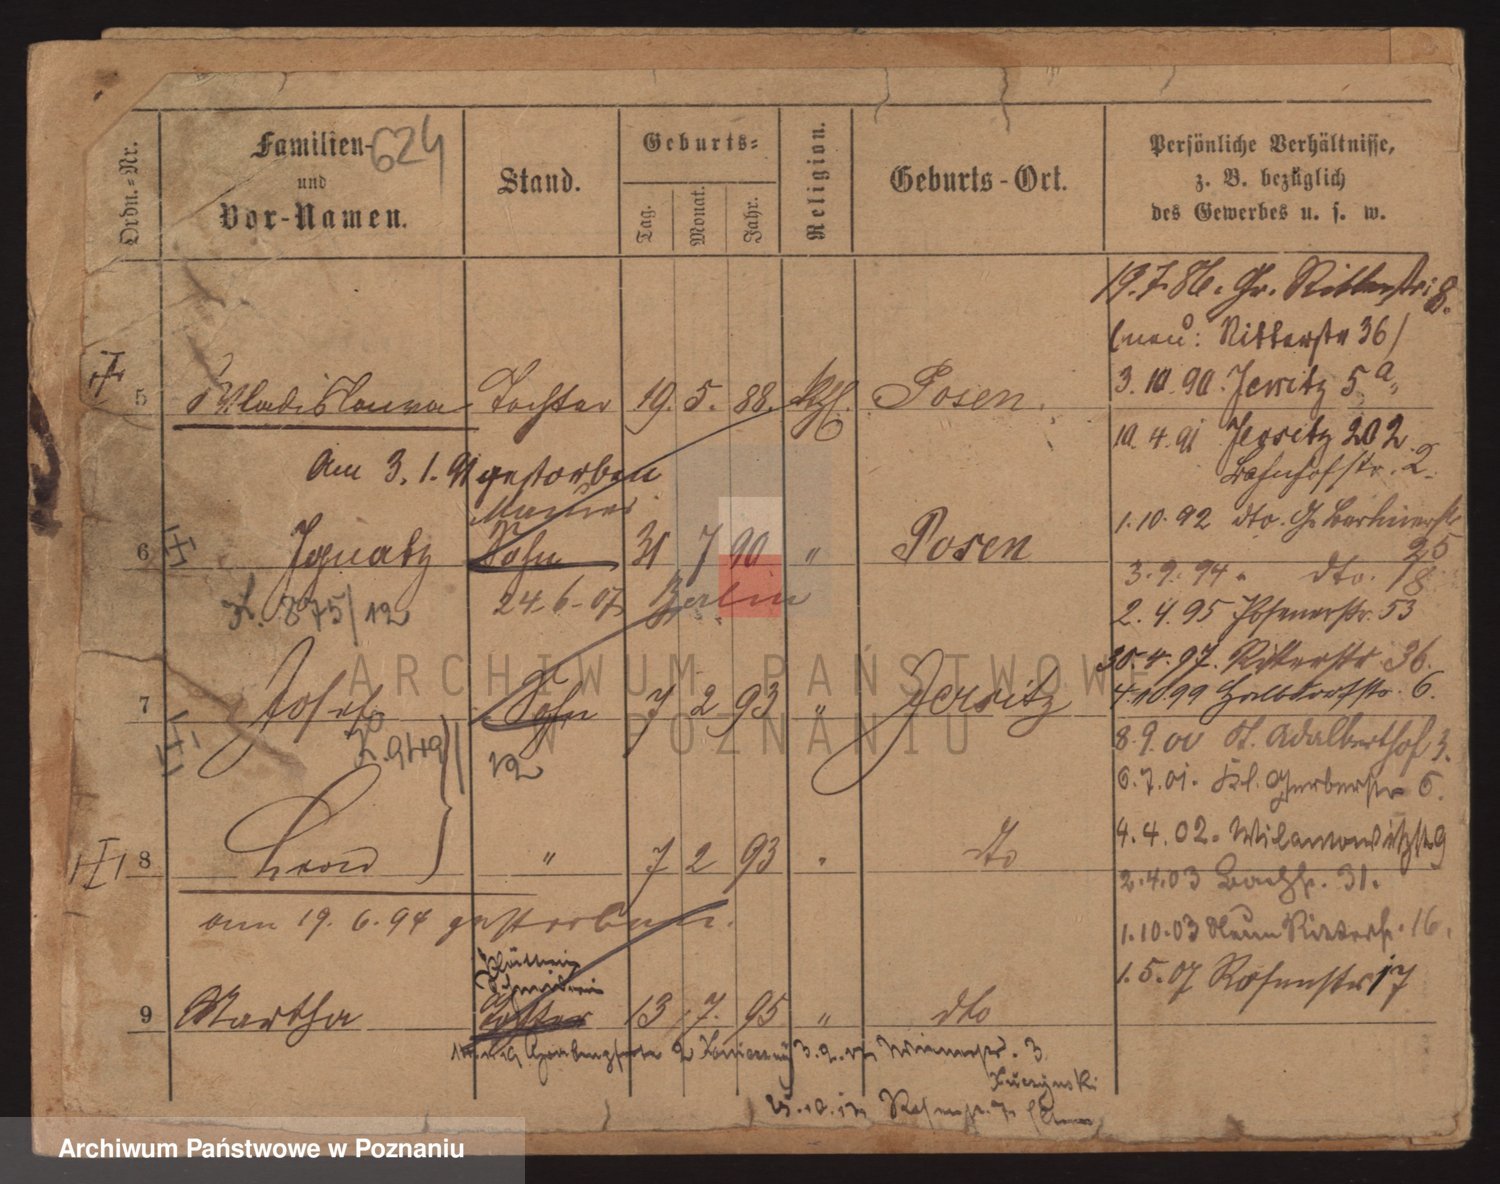 Ordn.-Nr.
Familien-
und
Vor-Namen.
624
Stand.
Geburts-
Tag.
Monat.
Jahr.
Religion.
Geburts-Ort.
Persönliche Verhältnisse,
z. B. bezüglich
des Gewerbes u. s. w.
5 Wladislawa Tochter 19. 5. 88. Kth. Posen.
am 3. 1. 91 gestorben
6 Ignatz Sohn 31 7 90 " Posen
24.6-07 Berlin
K. 875/12
7 Josef Sohn 7 2 93 " Jersitz
K. 949
12
8 Leon " 7 2 93 " dto
am 19. 6. 94 gestorben.
Schneiderin
9 Martha Tochter 13 7. 95 " dto
Wienerstr. 3
Kuczynski
19.7.86. Gr. Ritterstr. 8.
(neu: Ritterstr 36)
3. 10. 90. Jersitz 5a,
10. 4. 91 Jersitz 202
Bahnhofstr. 2.
1. 10. 92 dto. Gr. Berlinerstr
25
3. 9. 94. dto. 18.
2. 4. 95 Posenerstr. 53
30. 4. 97. Ritterstr. 36.
4.10 99 Halbdorfstr. 6.
8. 9. 00 St. Adalberthof 3.
6. 7. 01. Kl. Gerberstr 6.
4. 4. 02. Wilamowitzstr 9
2. 4. 03 Bachstr. 31.
1. 10. 03 Neue Ritterstr. 16.
1. 5. 07 Rosenstr 17
ARCHIWUM PAŃSTWOWE
W POZNANIU
Archiwum Państwowe w Poznaniu